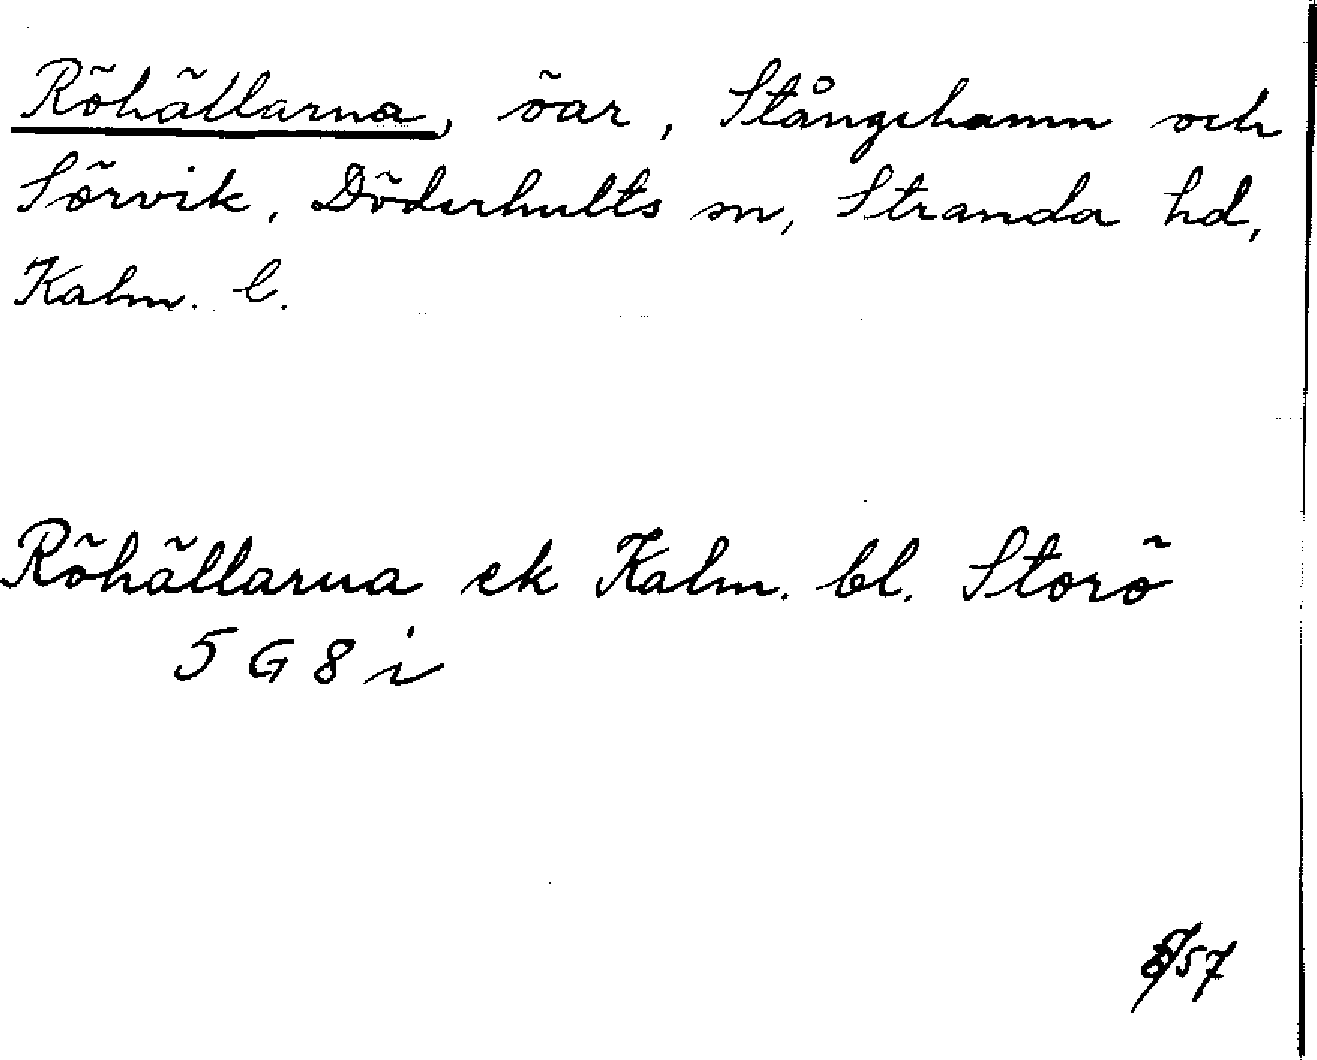 Röhällarna, öar, Stångehamn och
Sörvik, Döderhults sn, Stranda hd,
Kalm. l.
Röhällarna ek Kalm. bl. Storö
5 G 8 i